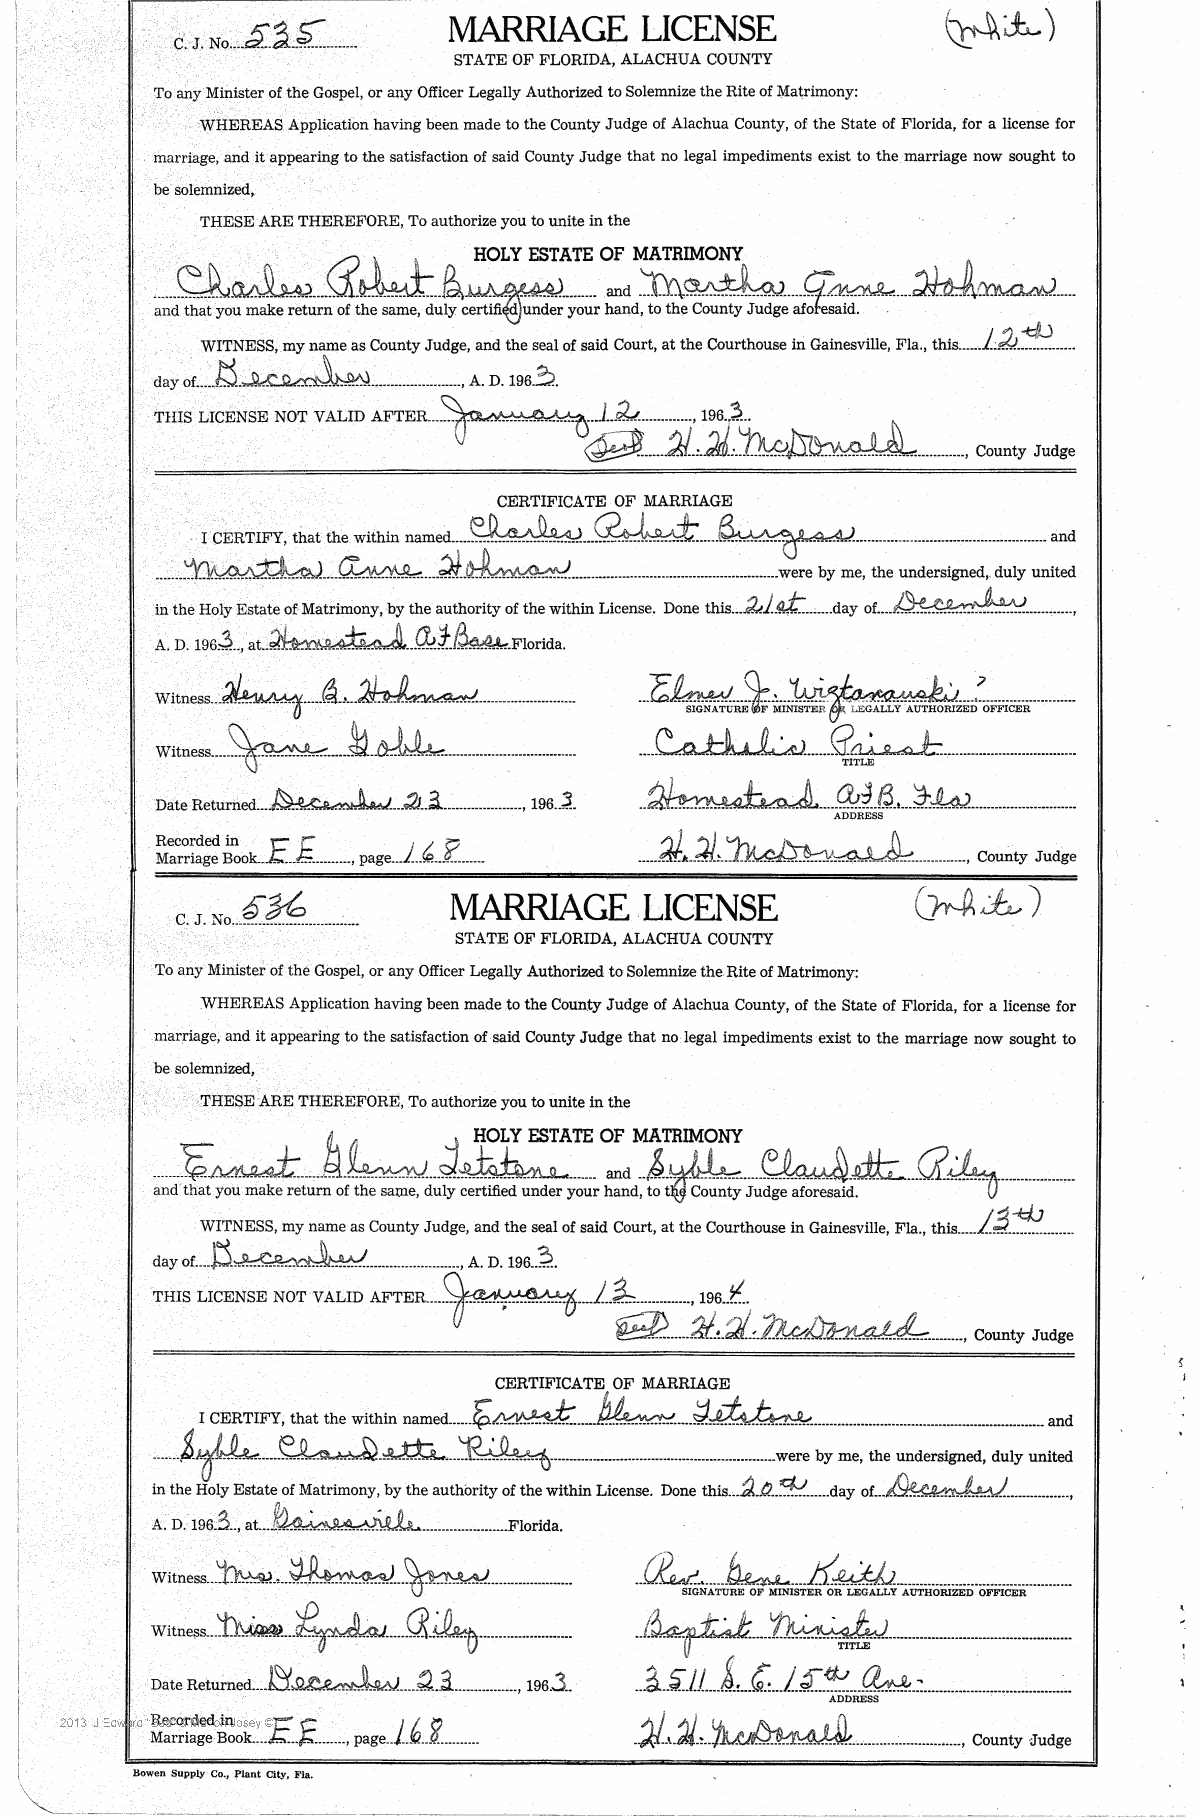 C. J. No. 535 MARRIAGE LICENSE (White)
STATE OF FLORIDA, ALACHUA COUNTY
To any Minister of the Gospel, or any Officer Legally Authorized to Solemnize the Rite of Matrimony:
WHEREAS Application having been made to the County Judge of Alachua County, of the State of Florida, for a license for
marriage, and it appearing to the satisfaction of said County Judge that no legal impediments exist to the marriage now sought to
be solemnized,
THESE ARE THEREFORE, To authorize you to unite in the
HOLY ESTATE OF MATRIMONY
Charles Robert Burgess and Martha Anne Hohman
and that you make return of the same, duly certified under your hand, to the County Judge aforesaid.
WITNESS, my name as County Judge, and the seal of said Court, at the Courthouse in Gainesville, Fla., this 12th
day of December, A. D. 1963.
THIS LICENSE NOT VALID AFTER January 12, 1963.
Seal H. H. McDonald, County Judge
CERTIFICATE OF MARRIAGE
I CERTIFY, that the within named Charles Robert Burgess and
Martha Anne Hohman were by me, the undersigned, duly united
in the Holy Estate of Matrimony, by the authority of the within License. Done this 21st day of December,
A. D. 1963, at Homestead AF Base Florida.
Witness Henry B. Hohman Elmer J. Wigtanauski ?
SIGNATURE OF MINISTER OR LEGALLY AUTHORIZED OFFICER
Witness Jane Goble Catholic Priest
TITLE
Date Returned December 23, 1963 Homestead AFB, Fla
ADDRESS
Recorded in
Marriage Book EE, page 168 H. H. McDonald, County Judge
C. J. No. 536 MARRIAGE LICENSE (White)
STATE OF FLORIDA, ALACHUA COUNTY
To any Minister of the Gospel, or any Officer Legally Authorized to Solemnize the Rite of Matrimony:
WHEREAS Application having been made to the County Judge of Alachua County, of the State of Florida, for a license for
marriage, and it appearing to the satisfaction of said County Judge that no legal impediments exist to the marriage now sought to
be solemnized,
THESE ARE THEREFORE, To authorize you to unite in the
HOLY ESTATE OF MATRIMONY
Ernest Glenn Tetstone and Syble Claudette Riley
and that you make return of the same, duly certified under your hand, to the County Judge aforesaid.
WITNESS, my name as County Judge, and the seal of said Court, at the Courthouse in Gainesville, Fla., this 13th
day of December, A. D. 1963.
THIS LICENSE NOT VALID AFTER January 13, 1964.
Seal H. H. McDonald, County Judge
CERTIFICATE OF MARRIAGE
I CERTIFY, that the within named Ernest Glenn Tetstone and
Syble Claudette Riley were by me, the undersigned, duly united
in the Holy Estate of Matrimony, by the authority of the within License. Done this 20th day of December,
A. D. 1963, at Gainesville Florida.
Witness Mrs. Thomas Jones Rev. Gene Keith
SIGNATURE OF MINISTER OR LEGALLY AUTHORIZED OFFICER
Witness Miss Lynda Riley Baptist Minister
TITLE
Date Returned December 23, 1963 3511 S. E. 15th Ave.
ADDRESS
2013 J Edward Josey ©
Recorded in
Marriage Book EE, page 168 H. H. McDonald, County Judge
Bowen Supply Co., Plant City, Fla.